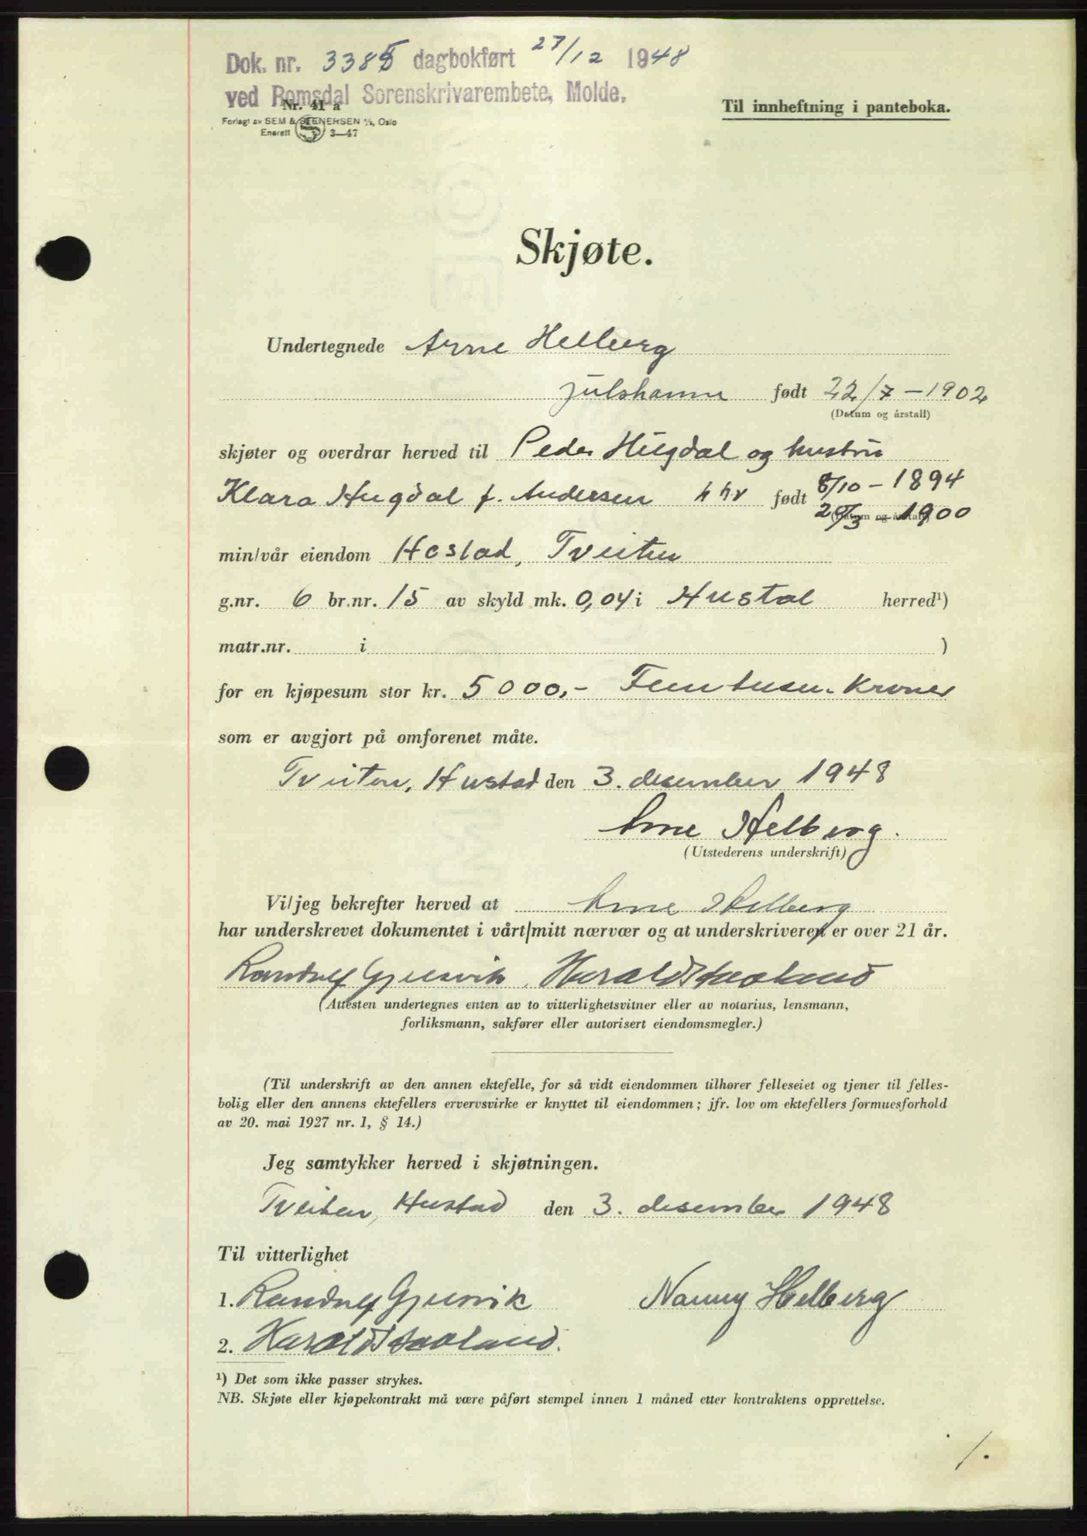 Dok. nr. 3385 dagbokført 27/12 1948
ved Romsdal Sorenskrivarembete, Molde.
Nr. 41 a
Forlagt av SEM & STENERSEN A/S, Oslo
Enerett S 3—47
Til innheftning i panteboka.
Skjøte.
Undertegnede Arne Helberg
Julshamn født 22/7 - 1902
(Datum og årstall)
skjøter og overdrar herved til Peder Hugdal og hustru
Klara Hugdal f. Andersen hhv født 8/10 - 1894
20/3 1900
(Datum og årstall)
min/vår eiendom Hostad, Tveiten
g.nr. 6 br.nr. 15 av skyld mk. 0,04 i Hustad herred¹)
matr.nr. i )
for en kjøpesum stor kr. 5000,- Femtusen Kroner
som er avgjort på omforenet måte.
Tveiten, Hustad den 3. desember 1948
Arne Helberg.
(Utstederens underskrift)
Vi/jeg bekrefter herved at Arne Helberg
har underskrevet dokumentet i vårt/mitt nærvær og at underskriveren er over 21 år.
Randulf Gjusvik. Harald
(Attesten undertegnes enten av to vitterlighetsvitner eller av notarius, lensmann,
forliksmann, sakfører eller autorisert eiendomsmegler.)
(Til underskrift av den annen ektefelle, for så vidt eiendommen tilhører felleseiet og tjener til felles-
bolig eller den annens ektefellers ervervsvirke er knyttet til eiendommen; jfr. lov om ektefellers formuesforhold
av 20. mai 1927 nr. 1, § 14.)
Jeg samtykker herved i skjøtningen.
Tveiten, Hustad den 3. desember 1948
Til vitterlighet
1. Randulf Gjusvik Nanny Helberg
2. Harald
¹) Det som ikke passer strykes.
NB. Skjøte eller kjøpekontrakt må være påført stempel innen 1 måned etter kontraktens opprettelse.
1.